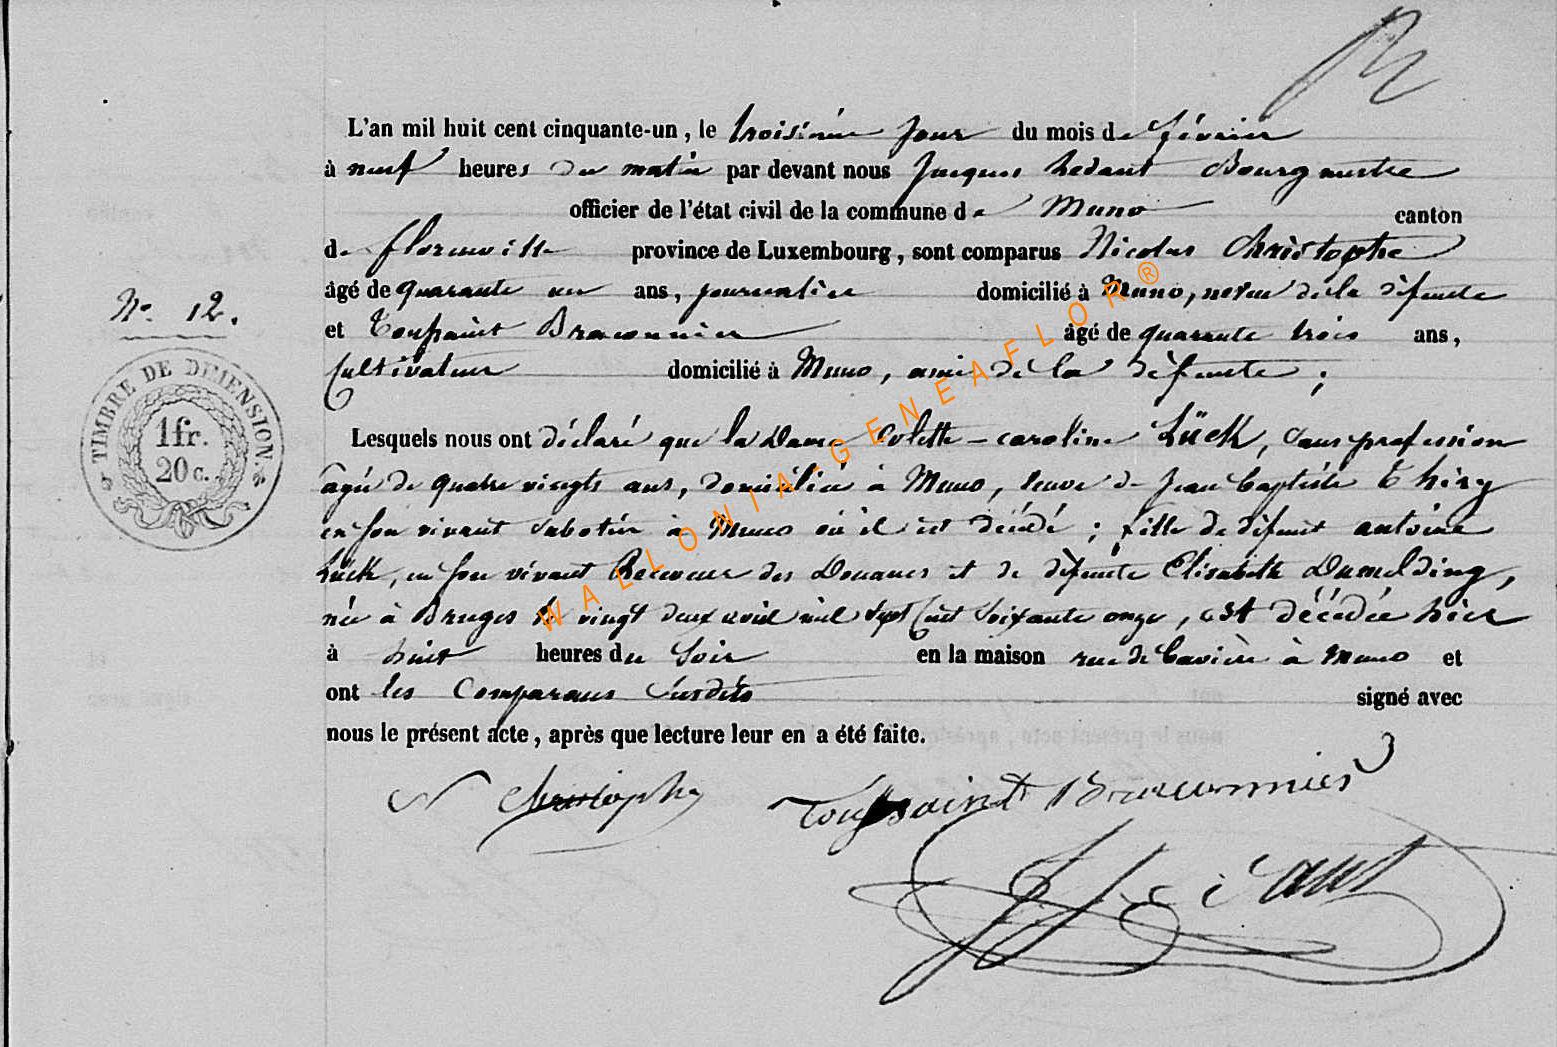 L'an mil huit cent cinquante-un, le troisième jour du mois de février
à neuf heures du matin par devant nous Jacques hedant Bourgmestre
officier de l'état civil de la commune de Muno canton
de florenville province de Luxembourg, sont comparus Nicolas Christophe
âgé de quarante un ans, journalier domicilié à Muno, neveu de la défunte
N° 12.
et Toussaint Braconnier âgé de quarante trois ans,
Cultivateur domicilié à Muno, ami de la défunte ;
TIMBRE DE DIMENSION.
1fr.
20c.
Lesquels nous ont déclaré que la Dame Colette-caroline Lück, sans profession
âgée de quatre vingts ans, domiciliée à Muno, veuve de Jean baptiste Thiry
en son vivant sabotier à Muno où il est décédé ; fille de défunt antoine
Lück, en son vivant Receveur des Douanes et de défunte Elisabeth Dumelding,
née à Bruges le vingt deux avril mil sept cent soixante onze, est décédée hier
à huit heures du soir en la maison rue de baviere à Muno et
ont les Comparans susdits signé avec
nous le présent acte, après que lecture leur en a été faite.
N Christophe Toussaint Braconnier
J Hedant
WALLONIA-GENEAFLOR®